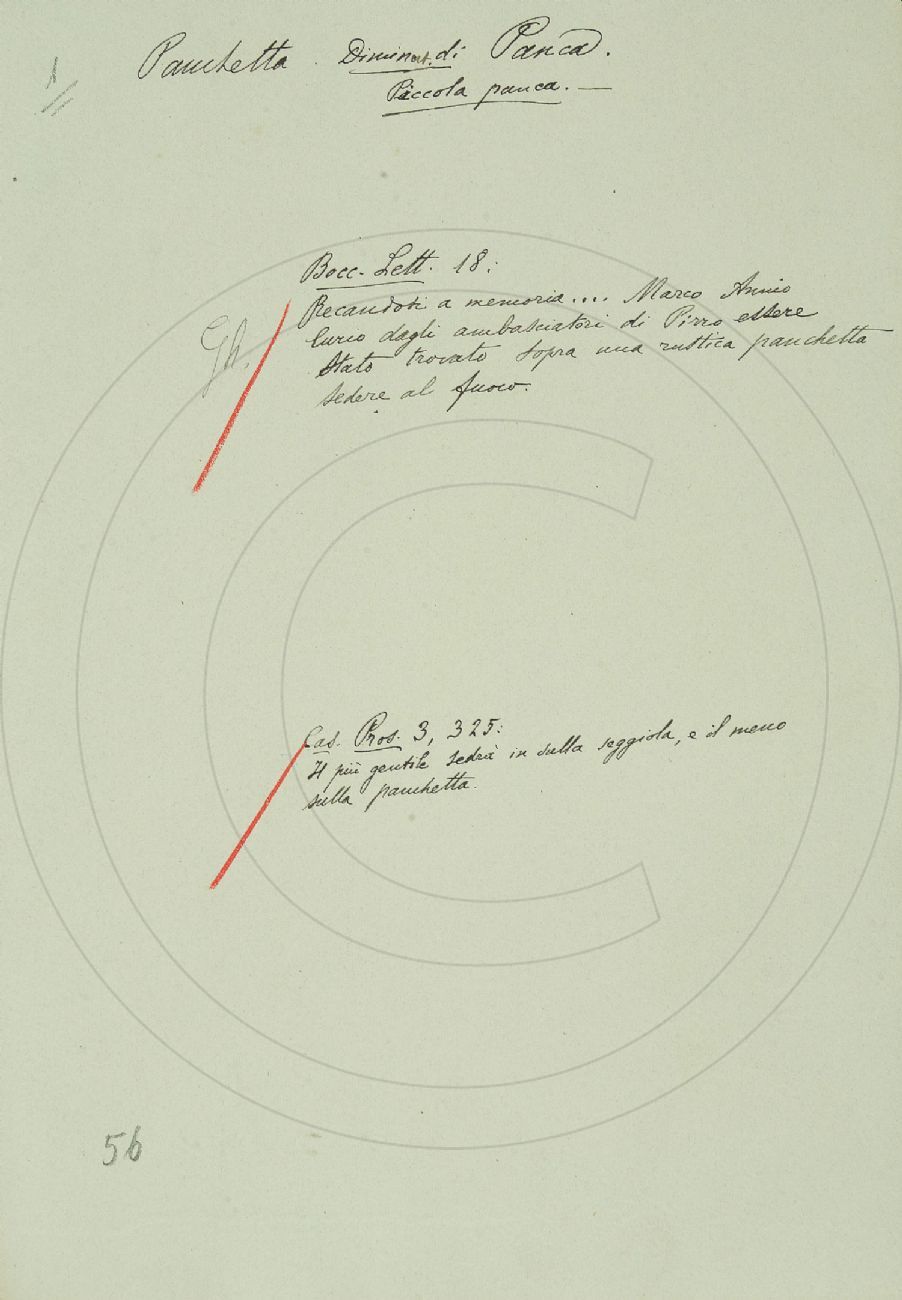 1
Panchetta. Diminut. di Panca.
Piccola panca. —
Bocc. Lett. 18:
Recandoti a memoria.... Marco Annio
Curio dagli ambasciatori di Pirro essere
stato trovato sopra una rustica panchetta
sedere al fuoco.
Gh.
Cas. Pros. 3, 325:
Il più gentile sedrà in sulla seggiola, e il meno
sulla panchetta.
56